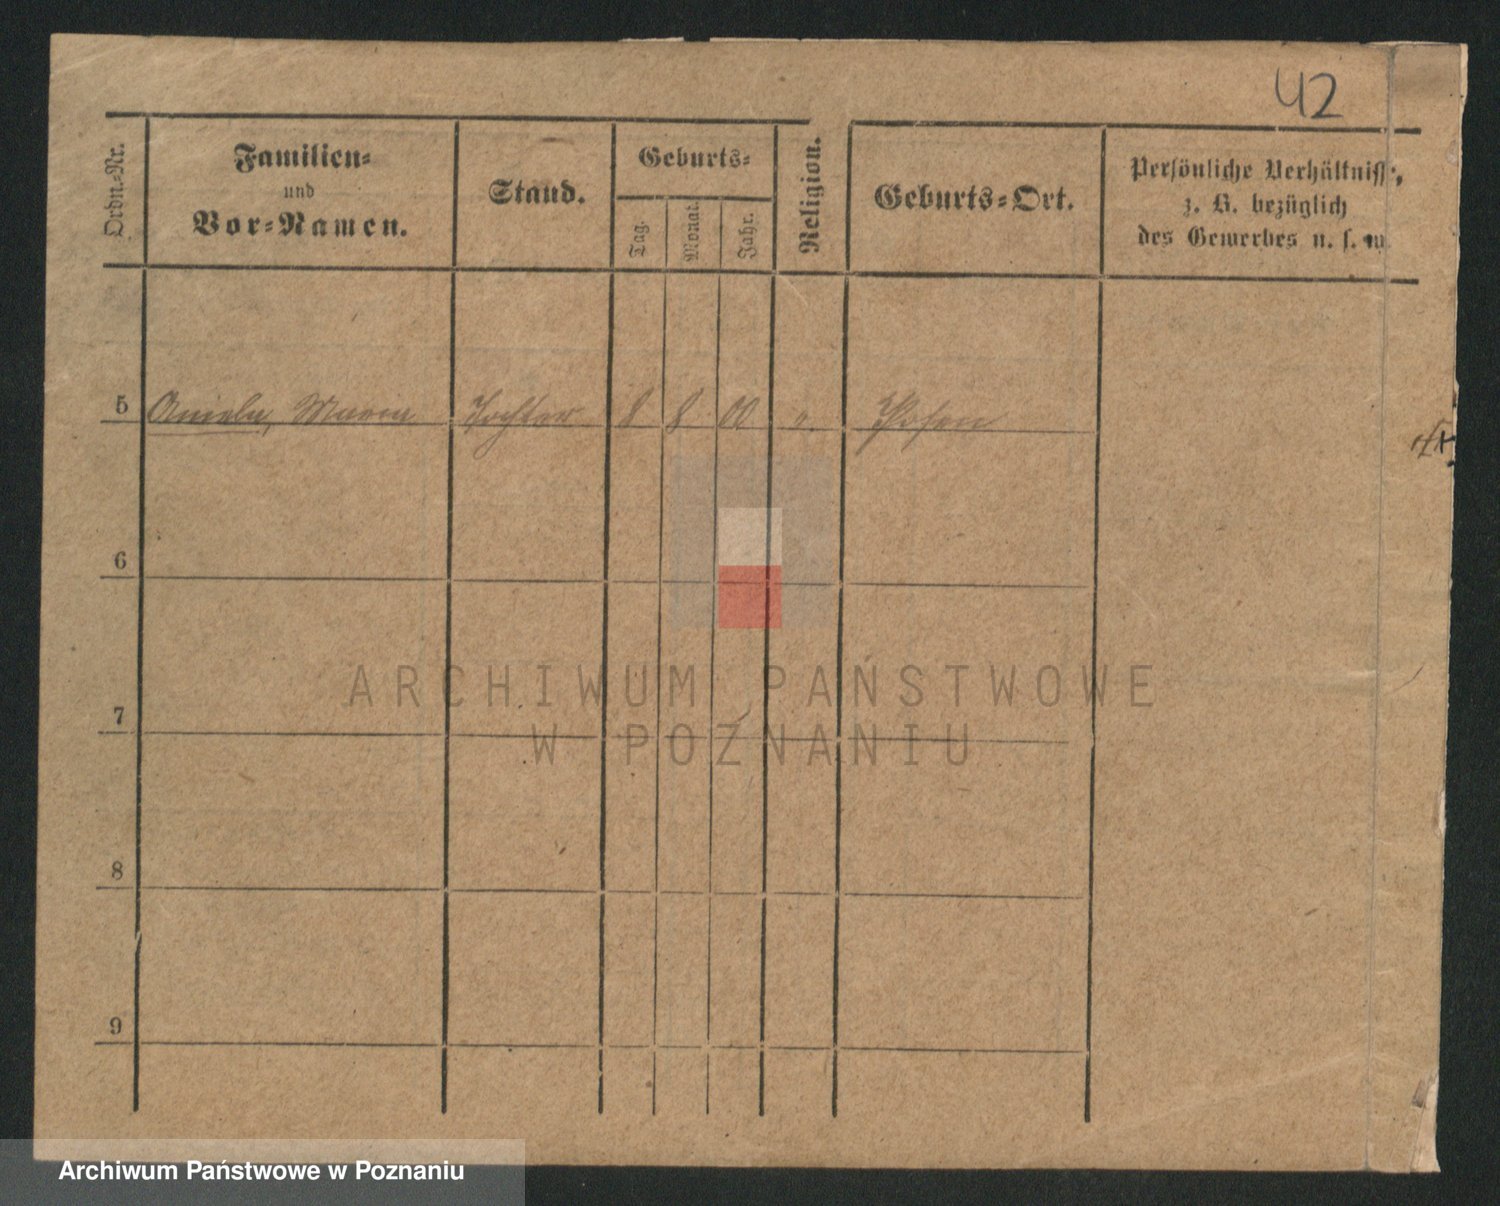 42
Ordn.-Nr.
Familien-
und
Vor-Namen.
Stand.
Geburts-
Tag.
Monat.
Jahr.
Religion.
Geburts-Ort.
Persönliche Verhältniss,
z. B. bezüglich
des Gewerbes u. s. w.
5 Aniela, Maria Tochter 8 8 00 Posen
6
7
8
9
ARCHIWUM PAŃSTWOWE
W POZNANIU
Archiwum Państwowe w Poznaniu